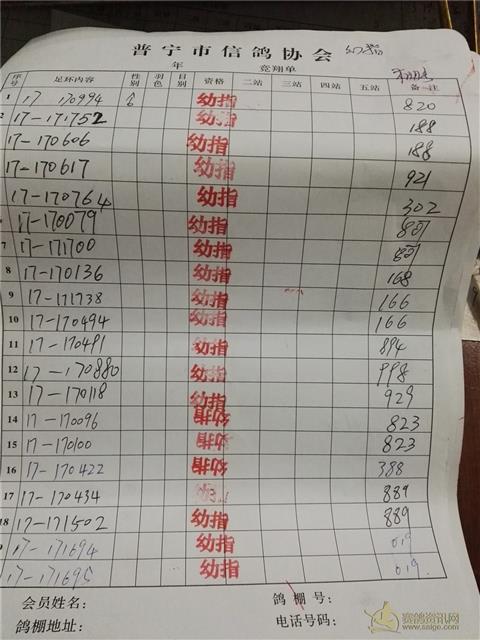 普宁市信鸽协会 幼指
年 竞翔单
序号 足环内容 性别 羽色 目别 资格 二站 三站 四站 五站 备注
1 17-170994 幼指 820
2 17-171752 幼指 188
17-170606 幼指 188
17-170617 幼指 921
17-170764 幼指 302
17-170079 幼指
7 17-171700 幼指
8 17-170136 幼指 168
9 17-171738 幼指 166
10 17-170494 幼指 166
11 17-170491 幼指 894
12 17-170880 幼指 998
13 17-170118 幼指 929
14 17-170096 幼指 823
15 17-170100 幼指 823
16 17-170422 幼指 388
17 17-170434 幼指 889
18 17-171502 幼指 889
17-171694 幼指 019
17-171695 幼指 019
会员姓名: 鸽棚号:
鸽棚地址: 电话号码:
赛鸽资讯网
www.saige.com